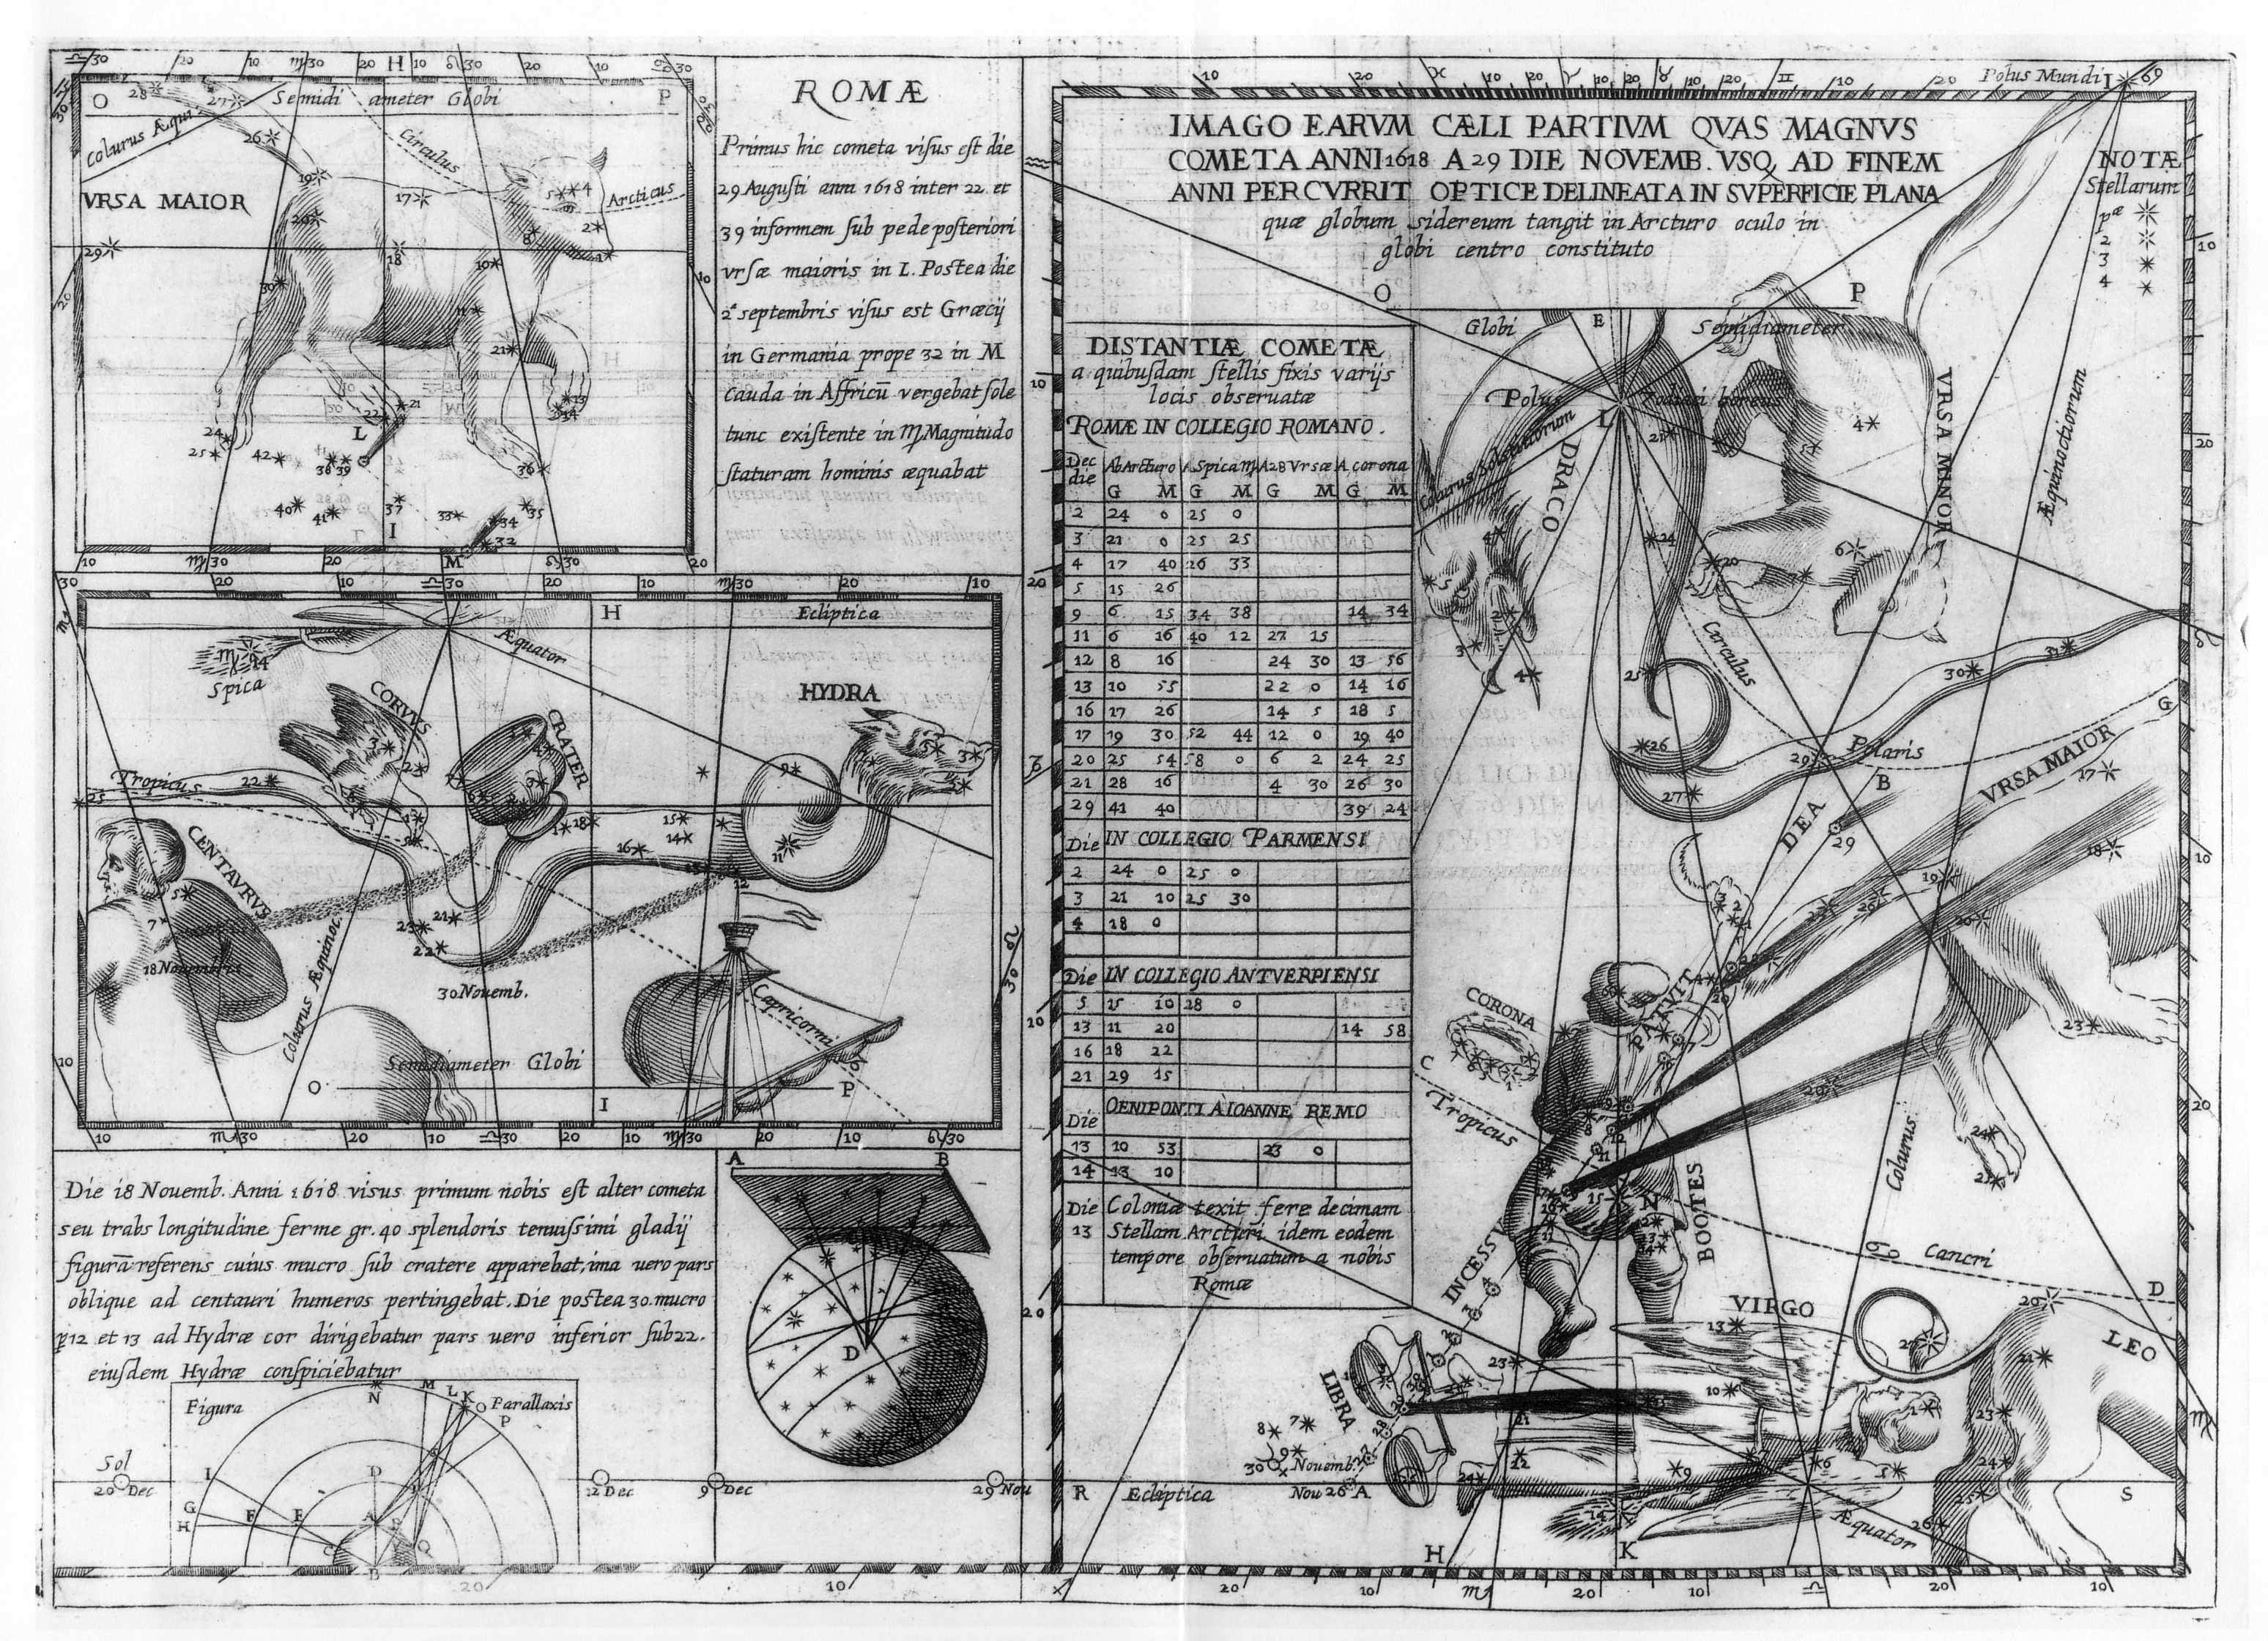 ROMÆ
Primus hic cometa visus est die
29 Augusti anni 1618 inter 22 et
39 informem sub pede posteriori
vrsæ maioris in L. Postea die
2ª septembris visus est Græcij
in Germania prope 32 in M
Cauda in Affricū vergebat sole
tunc existente in ♍ Magnitudo
staturam hominis æquabat
O
Semidiameter Globi
P
H
Colurus Æqui
Circulus
Arcticus
VRSA MAIOR
L
I
M
H
Ecliptica
Æquator
Spica
CORVVS
CRATER
HYDRA
Tropicus
CENTAVRVS
18 Novembris
30 Nouemb.
Colurus Æquinoc.
Capricorni
Semidiameter Globi
O
P
I
Die 18 Nouemb. Anni 1618 visus primum nobis est alter cometa
seu trabs longitudine ferme gr. 40 splendoris tenuissimi gladij
figurā referens cuius mucro sub cratere apparebat, ima uero pars
oblique ad centauri humeros pertingebat. Die postea 30. mucro
p 12 et 13 ad Hydræ cor dirigebatur pars uero inferior sub 22.
eiusdem Hydræ conspiciebatur
Figura
Parallaxis
N
M
L
K
O
P
I
G
H
F
E
D
A
C
B
Sol
20 Dec
12 Dec
9 Dec
29 Nou
A
B
D
IMAGO EARVM CÆLI PARTIVM QVAS MAGNVS
COMETA ANNI 1618 A 29 DIE NOVEMB. VSQ, AD FINEM
ANNI PERCVRRIT OPTICE DELINEATA IN SVPERFICIE PLANA
quæ globum sidereum tangit in Arcturo oculo in
globi centro constituto
Polus Mundi I
NOTÆ
Stellarum
pæ
2
3
4
DISTANTIÆ COMETÆ
a quibusdam stellis fixis varijs
locis obseruatæ
ROMÆ IN COLLEGIO ROMANO.
Dec die Ab Arcturo A Spica ♍ A 28 Vrsæ A corona
G M G M G M G M
2 24 0 25 0
3 21 0 25 25
4 17 40 26 33
5 15 26
9 6 15 34 38 14 34
11 6 16 40 12 27 15
12 8 16 24 30 13 56
13 10 55 22 0 14 16
16 17 26 14 5 18 5
17 19 30 52 44 12 0 19 40
20 25 54 58 0 6 2 24 25
21 28 16 4 30 26 30
29 41 40 39 24
Die IN COLLEGIO PARMENSI
2 24 0 25 0
3 21 10 25 30
4 18 0
Die IN COLLEGIO ANTVERPIENSI
5 15 10 28 0
13 11 20 14 58
16 18 22
21 29 15
Die OENIPONTI A IOANNE REMO
13 10 53 23 0
14 13 10
Die Coloniæ texit fere decimam
13 Stellam Arcturi idem eodem
tempore obseruatum a nobis
Romæ
O
P
Globi
E
Semidiameter
Polus
L
Zodiaci boreus
Colurus Solstitiorum
DRACO
VRSA MINOR
Æquinoctiorum
Circulus
Polaris
G
B
VRSA MAIOR
DEA
PATVIT
INCESSV
CORONA
C
Tropicus
BOOTES
Colurus
Cancri
D
VIRGO
LEO
LIBRA
30 Nouemb.
Nou 26 A
R
Ecliptica
S
Æquator
H
K